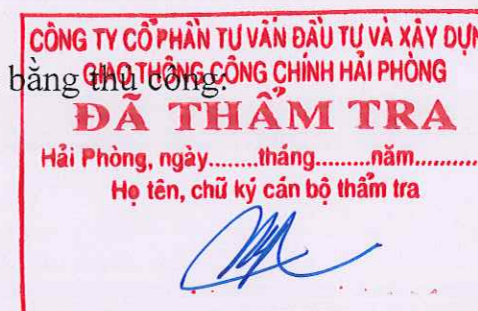 CÔNG TY CỔ PHẦN TƯ VẤN ĐẦU TƯ VÀ XÂY DỰN
GIAO THÔNG CÔNG CHÍNH HẢI PHÒNG
bằng thủ công.
ĐÃ THẨM TRA
Hải Phòng, ngày........tháng.........năm..........
Họ tên, chữ ký cán bộ thẩm tra